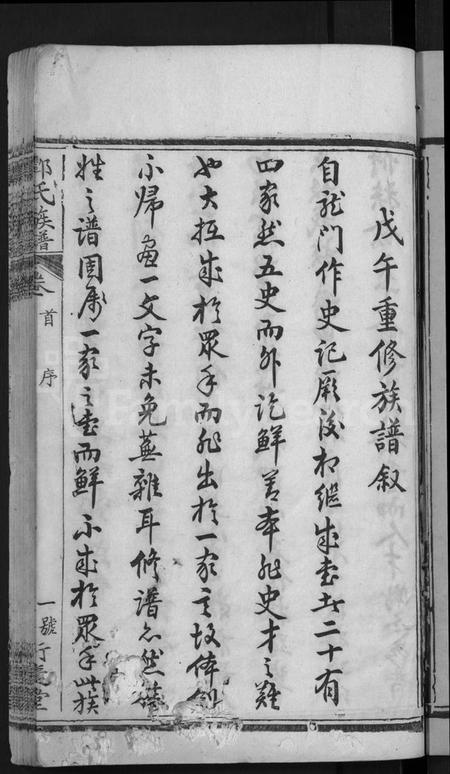 戊午重修族譜叙
自龍門作史記厥後相繼成書者二十有
四家然五史而外訖鮮善本非史才之難
也大抵成於眾手而非出於一家之故体例
不歸畫一文字未免蕪雜耳修譜亦然
姓之譜固屬一家之書而鮮不成於眾手此族
氏族譜
卷
首
序
一號